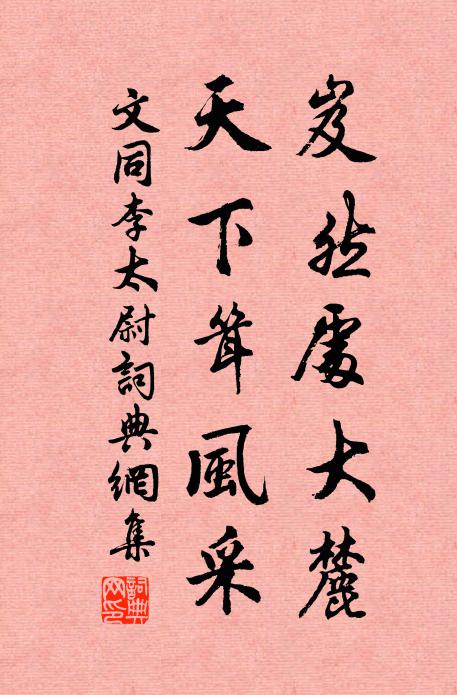 岌然處大麓
天下耸風采
文同李太尉詞典網集
詞典
网印